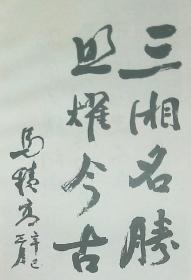 三湘名勝
照耀今古
馬積高 辛巳